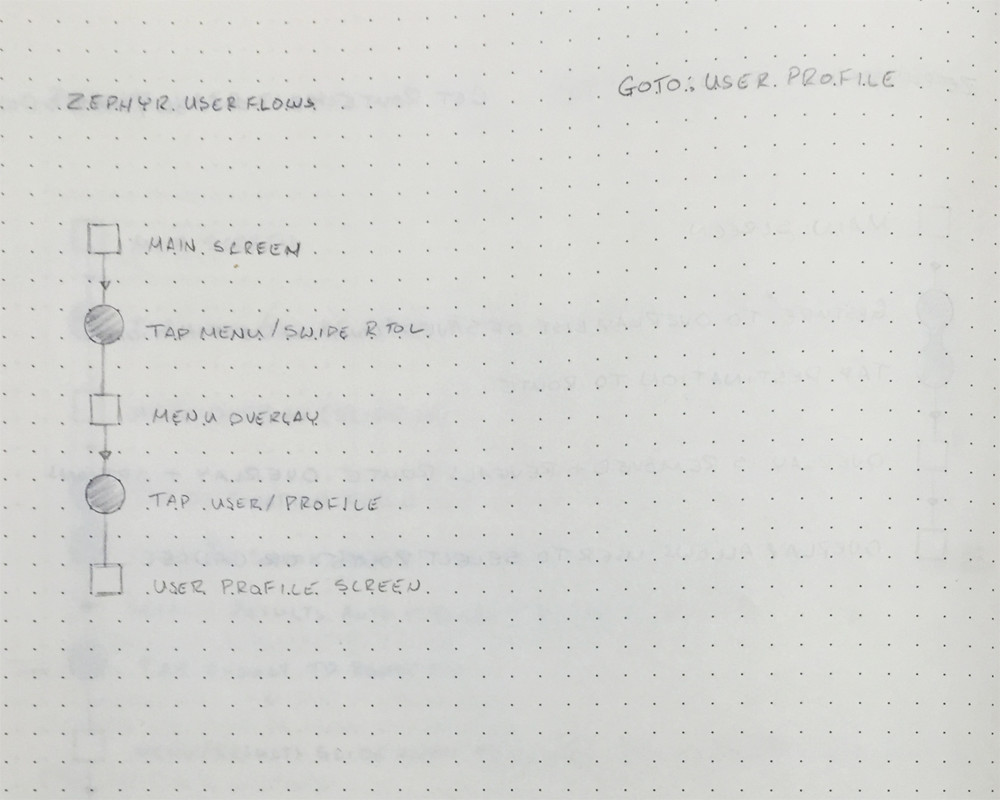 ZEPHYR USER FLOWS
GOTO: USER PROFILE
MAIN SCREEN
TAP MENU/SWIPE R TO L
MENU OVERLAY
TAP USER/PROFILE
USER PROFILE SCREEN